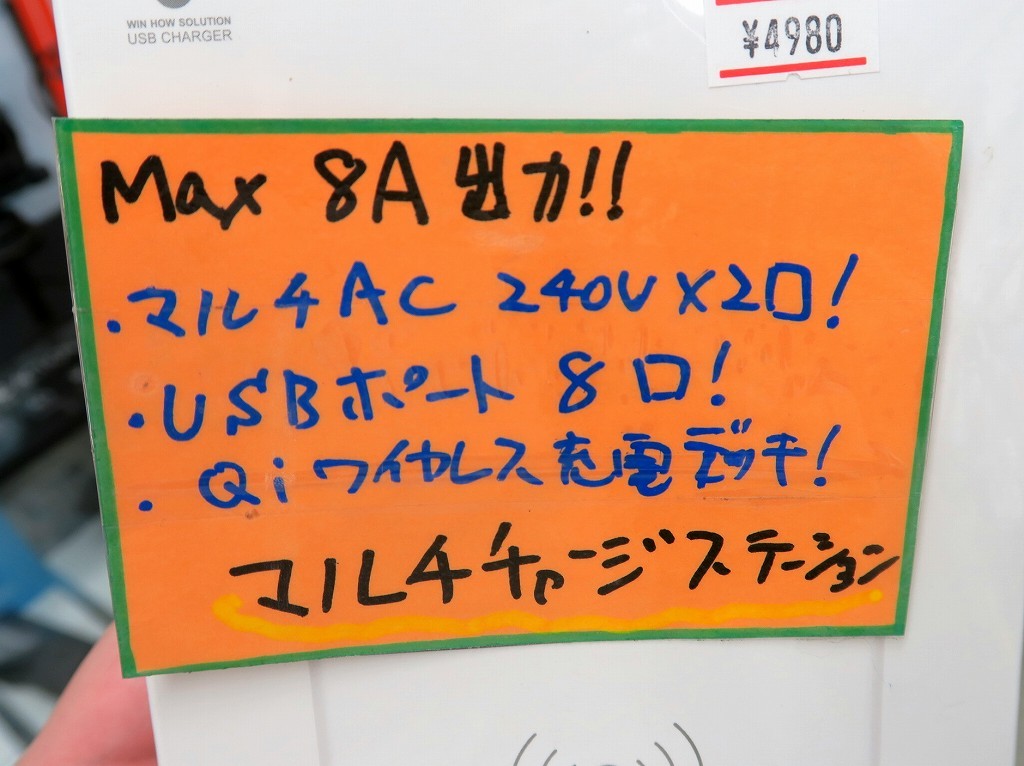 WIN HOW SOLUTION
USB CHARGER
¥4980
Max 8A 出力!!
・マルチAC 240V×2口!
・USBポート 8口!
・Qiワイヤレス充電デッキ!
マルチチャージステーション